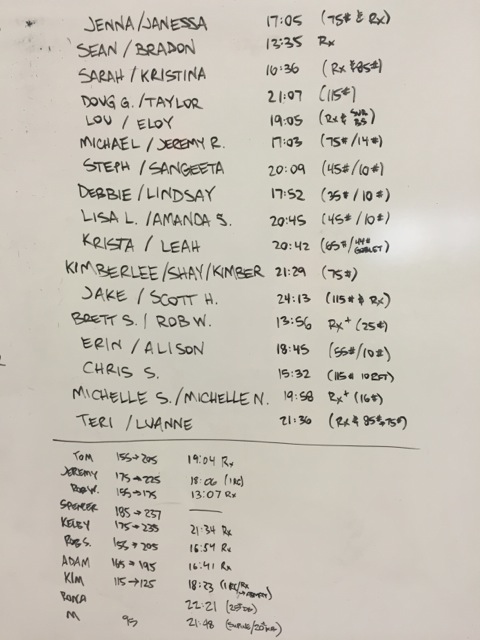 JENNA/JANESSA 17:05 (75# & Rx)
SEAN / BRADON 13:35 Rx
SARAH / KRISTINA 16:36 (Rx & 85#)
DOUG G. / TAYLOR 21:07 (115#)
LOU / ELOY 19:05 (Rx &
MICHAEL / JEREMY R. 17:03 (75#/14#)
STEPH / SANGEETA 20:09 (45#/10#)
DEBBIE / LINDSAY 17:52 (35#/10#)
LISA L. / AMANDA S. 20:45 (45#/10#)
KRISTA / LEAH 20:42 (65#/44# GOBLET)
KIMBERLEE/SHAY/KIMBER 21:29 (75#)
JAKE / SCOTT H. 24:13 (115# & Rx)
BRETT S. / ROB W. 13:56 Rx+ (25#)
ERIN / ALISON 18:45 (55#/10#)
CHRIS S. 15:32 (115# 10 RFT)
MICHELLE S. / MICHELLE N. 19:58 Rx+ (16#)
TERI / LUANNE 21:36 (Rx & 85#→75#)
TOM 155→205 19:04 Rx
JEREMY 175→225 18:06 (1RC)
ROB W. 155→175 13:07 Rx
SPENCER 185→237 —
KELBY 175→235 21:34 Rx
ROB S. 155→205 16:54 Rx
ADAM 165→195 16:41 Rx
KIM 115→125 18:23 (1RC/Rx
22:21
M 95 21:48